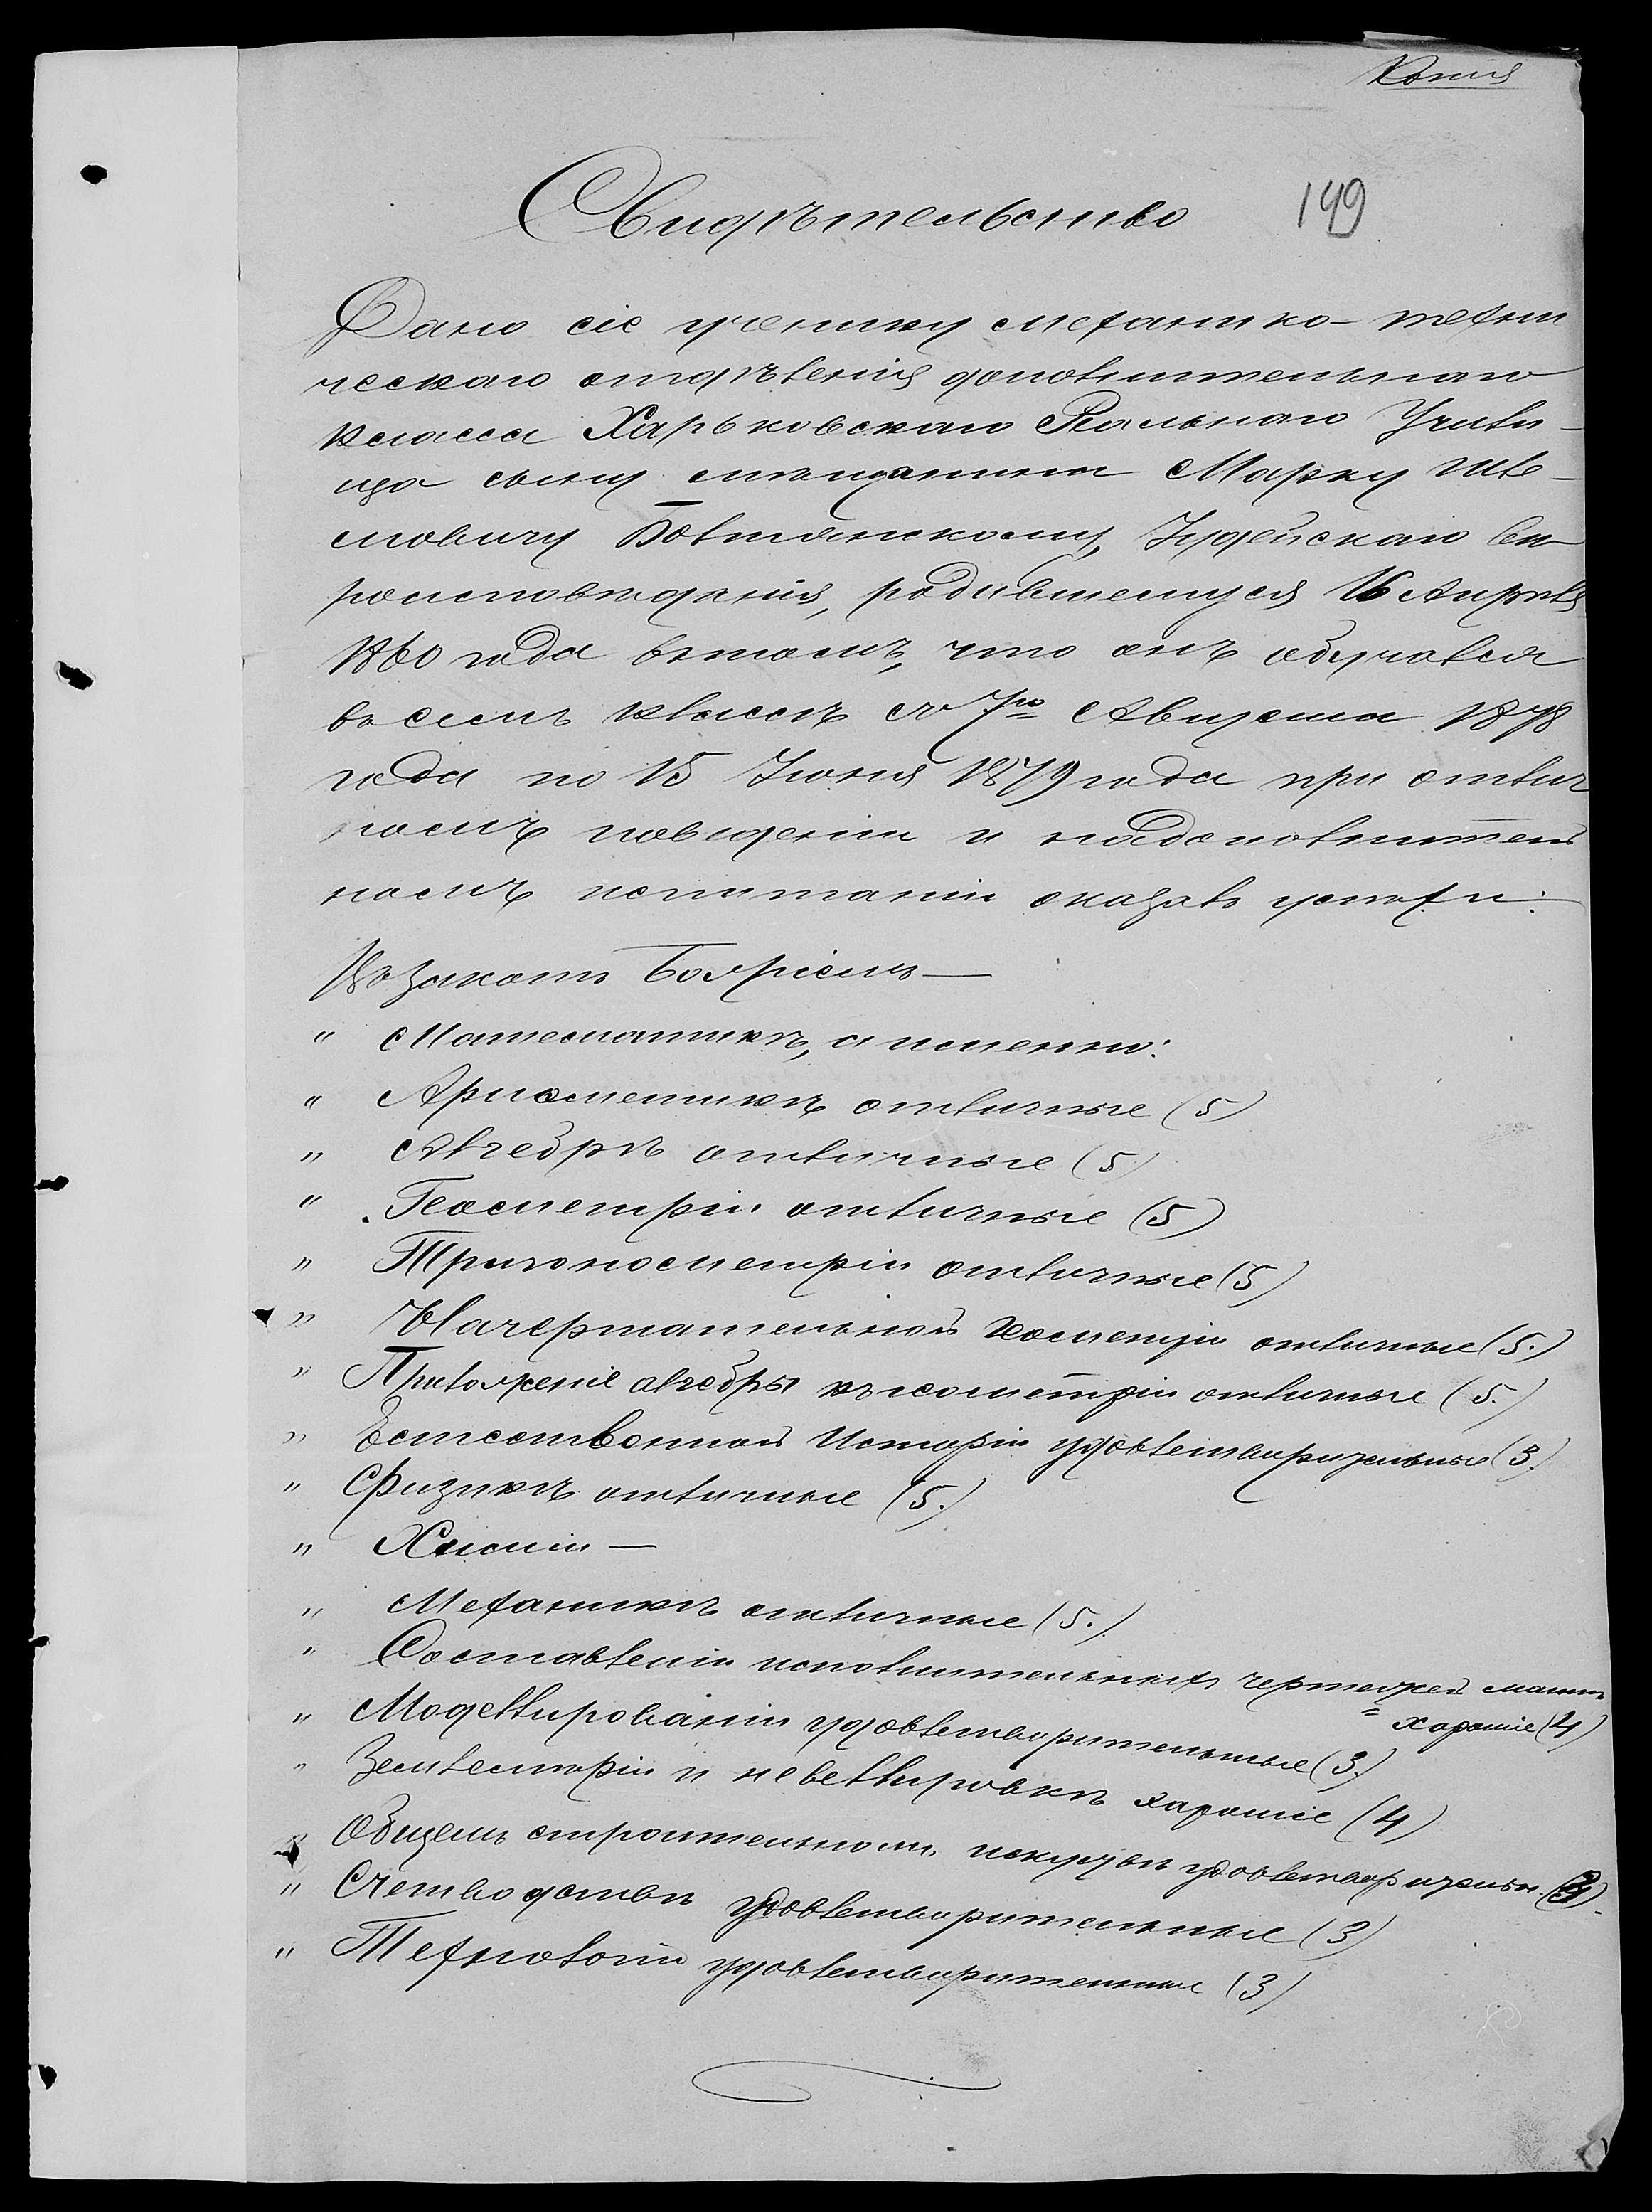 Копія
Свидѣтельство 149
Дано сіе ученику механико-техни
ческаго отдѣленія дополнительнаго
класса Харьковскаго Реальнаго Учили-
ща сыну мѣщанина Марку
Іудейскаго вѣ
роисповѣданія, родившемуся 16 Апрѣля
1860 года въ томъ, что онъ обучался
въ семъ классѣ съ 7го Августа 1878
года по 15 Іюня 1879 года при отлич
номъ поведеніи и на дополнитель
номъ испытаніи оказалъ успѣхи:
Въ Законѣ Божіемъ —
" Математикѣ, а именно:
" Ариѳметикѣ отличные (5)
" Алгебрѣ отличные (5)
" Геометріи отличные (5)
" Тригонометріи отличные (5)
" Начертательной геометріи отличные (5.)
" Приложеніе алгебры къ геометріи отличные (5.)
" Естественной Исторіи удовлетворительные (3.)
" Физикѣ отличные (5.)
" Химіи —
" Механикѣ отличные (5.)
" Составленіи исполнительныхъ чертежей машинъ
хорошіе (4)
" Моделлированіи удовлетворительные (3.)
" Землемѣріи и невеллировкѣ хорошіе (4)
" Общемъ строительномъ искусствѣ удовлетворительн.
" Счетоводствѣ удовлетворительные (3)
" Технологіи удовлетворительные (3)